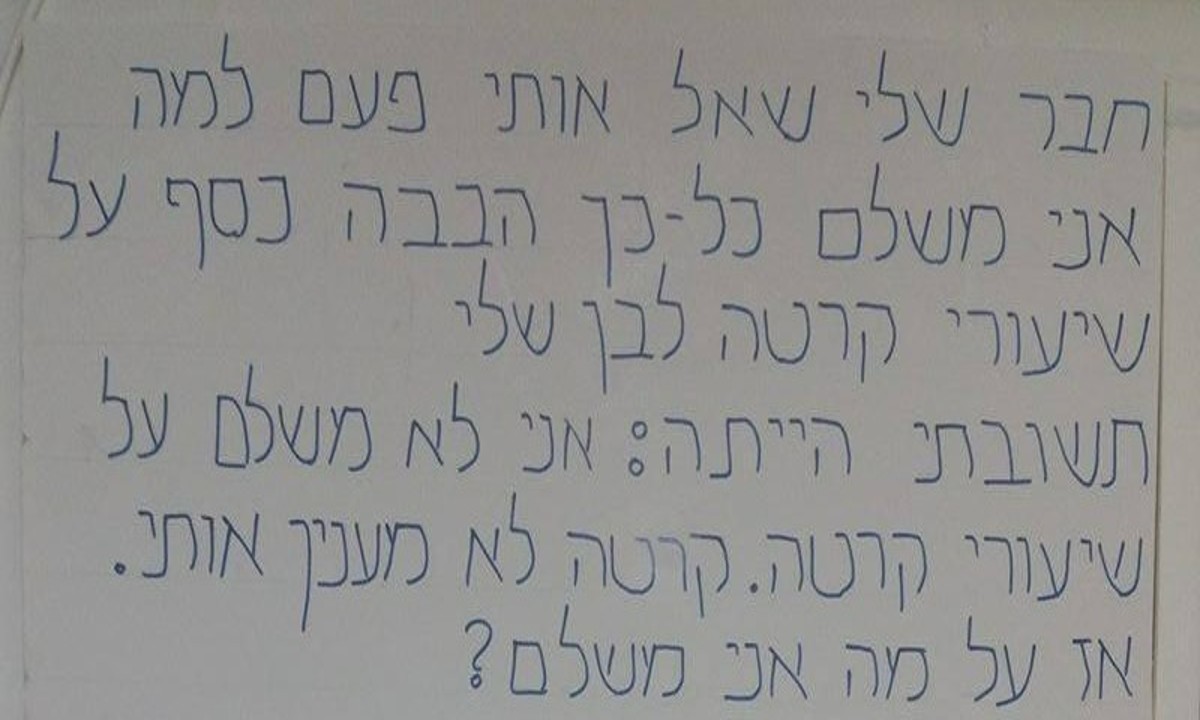 חבר שלי שאל אותי פעם למה
אני משלם כל-כך הבבה כסף על
שיעורי קרטה לבן שלי
תשובתי הייתה: אני לא משלם על
שיעורי קרטה. קרטה לא מענין אותי.
אז על מה אני משלם?